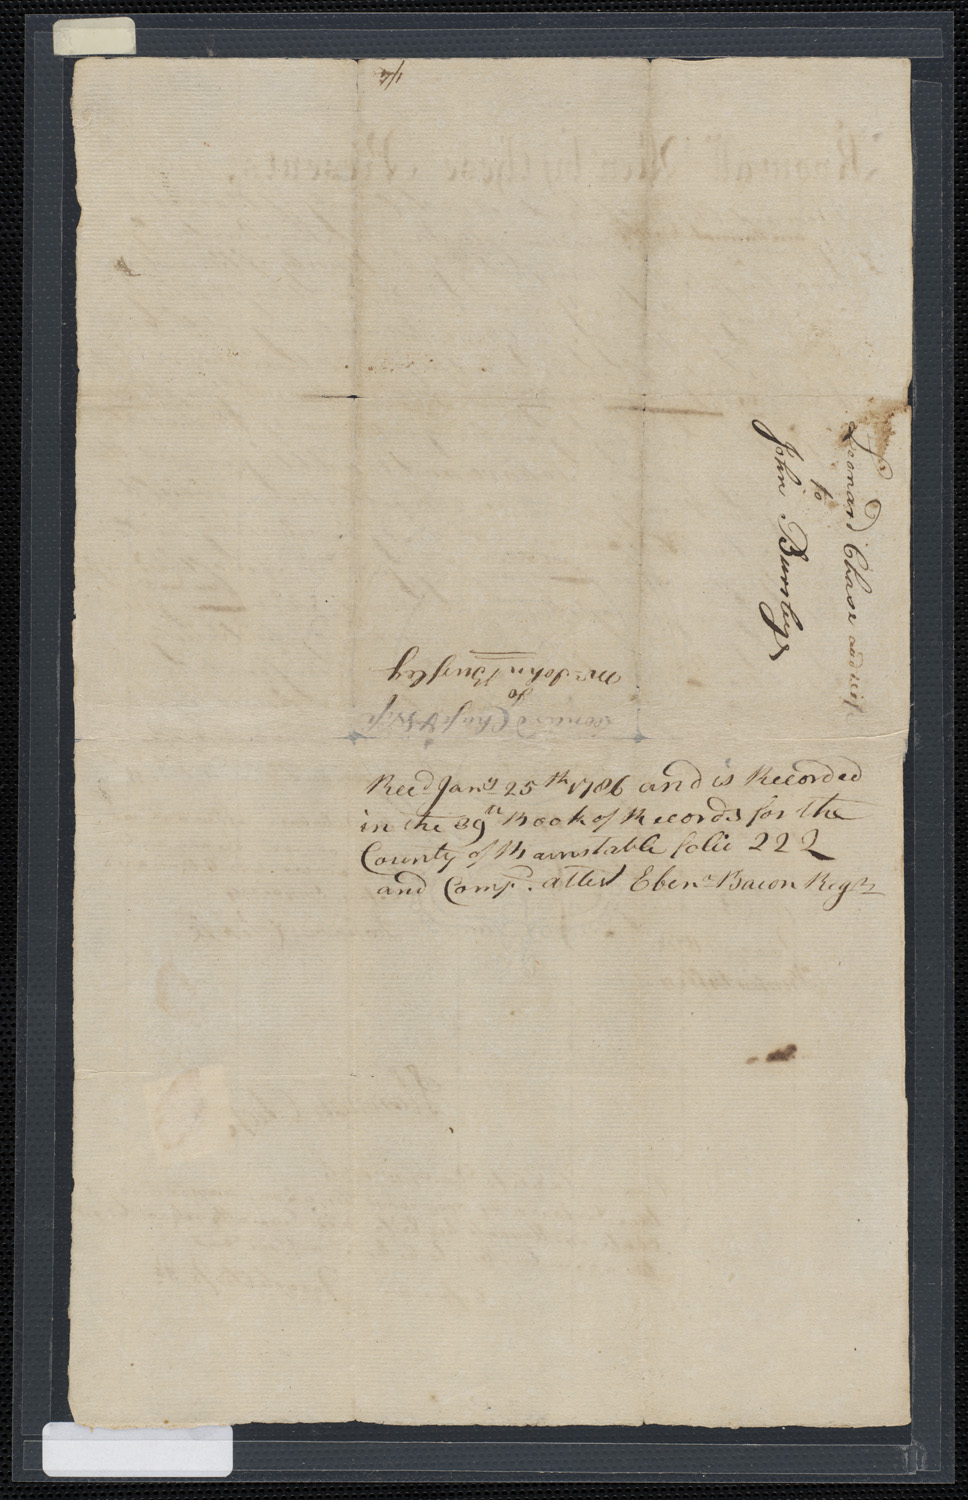 Leonard Chase and wife
to
John Bursley
Leonard Chase & Wife
to
Mr John Bursley
Recd Jany 25th 1786 and is Recorded
in the 39th Book of Records for the
County of Barnstable folio 222
and Comp. attest Ebenr Bacon Regr